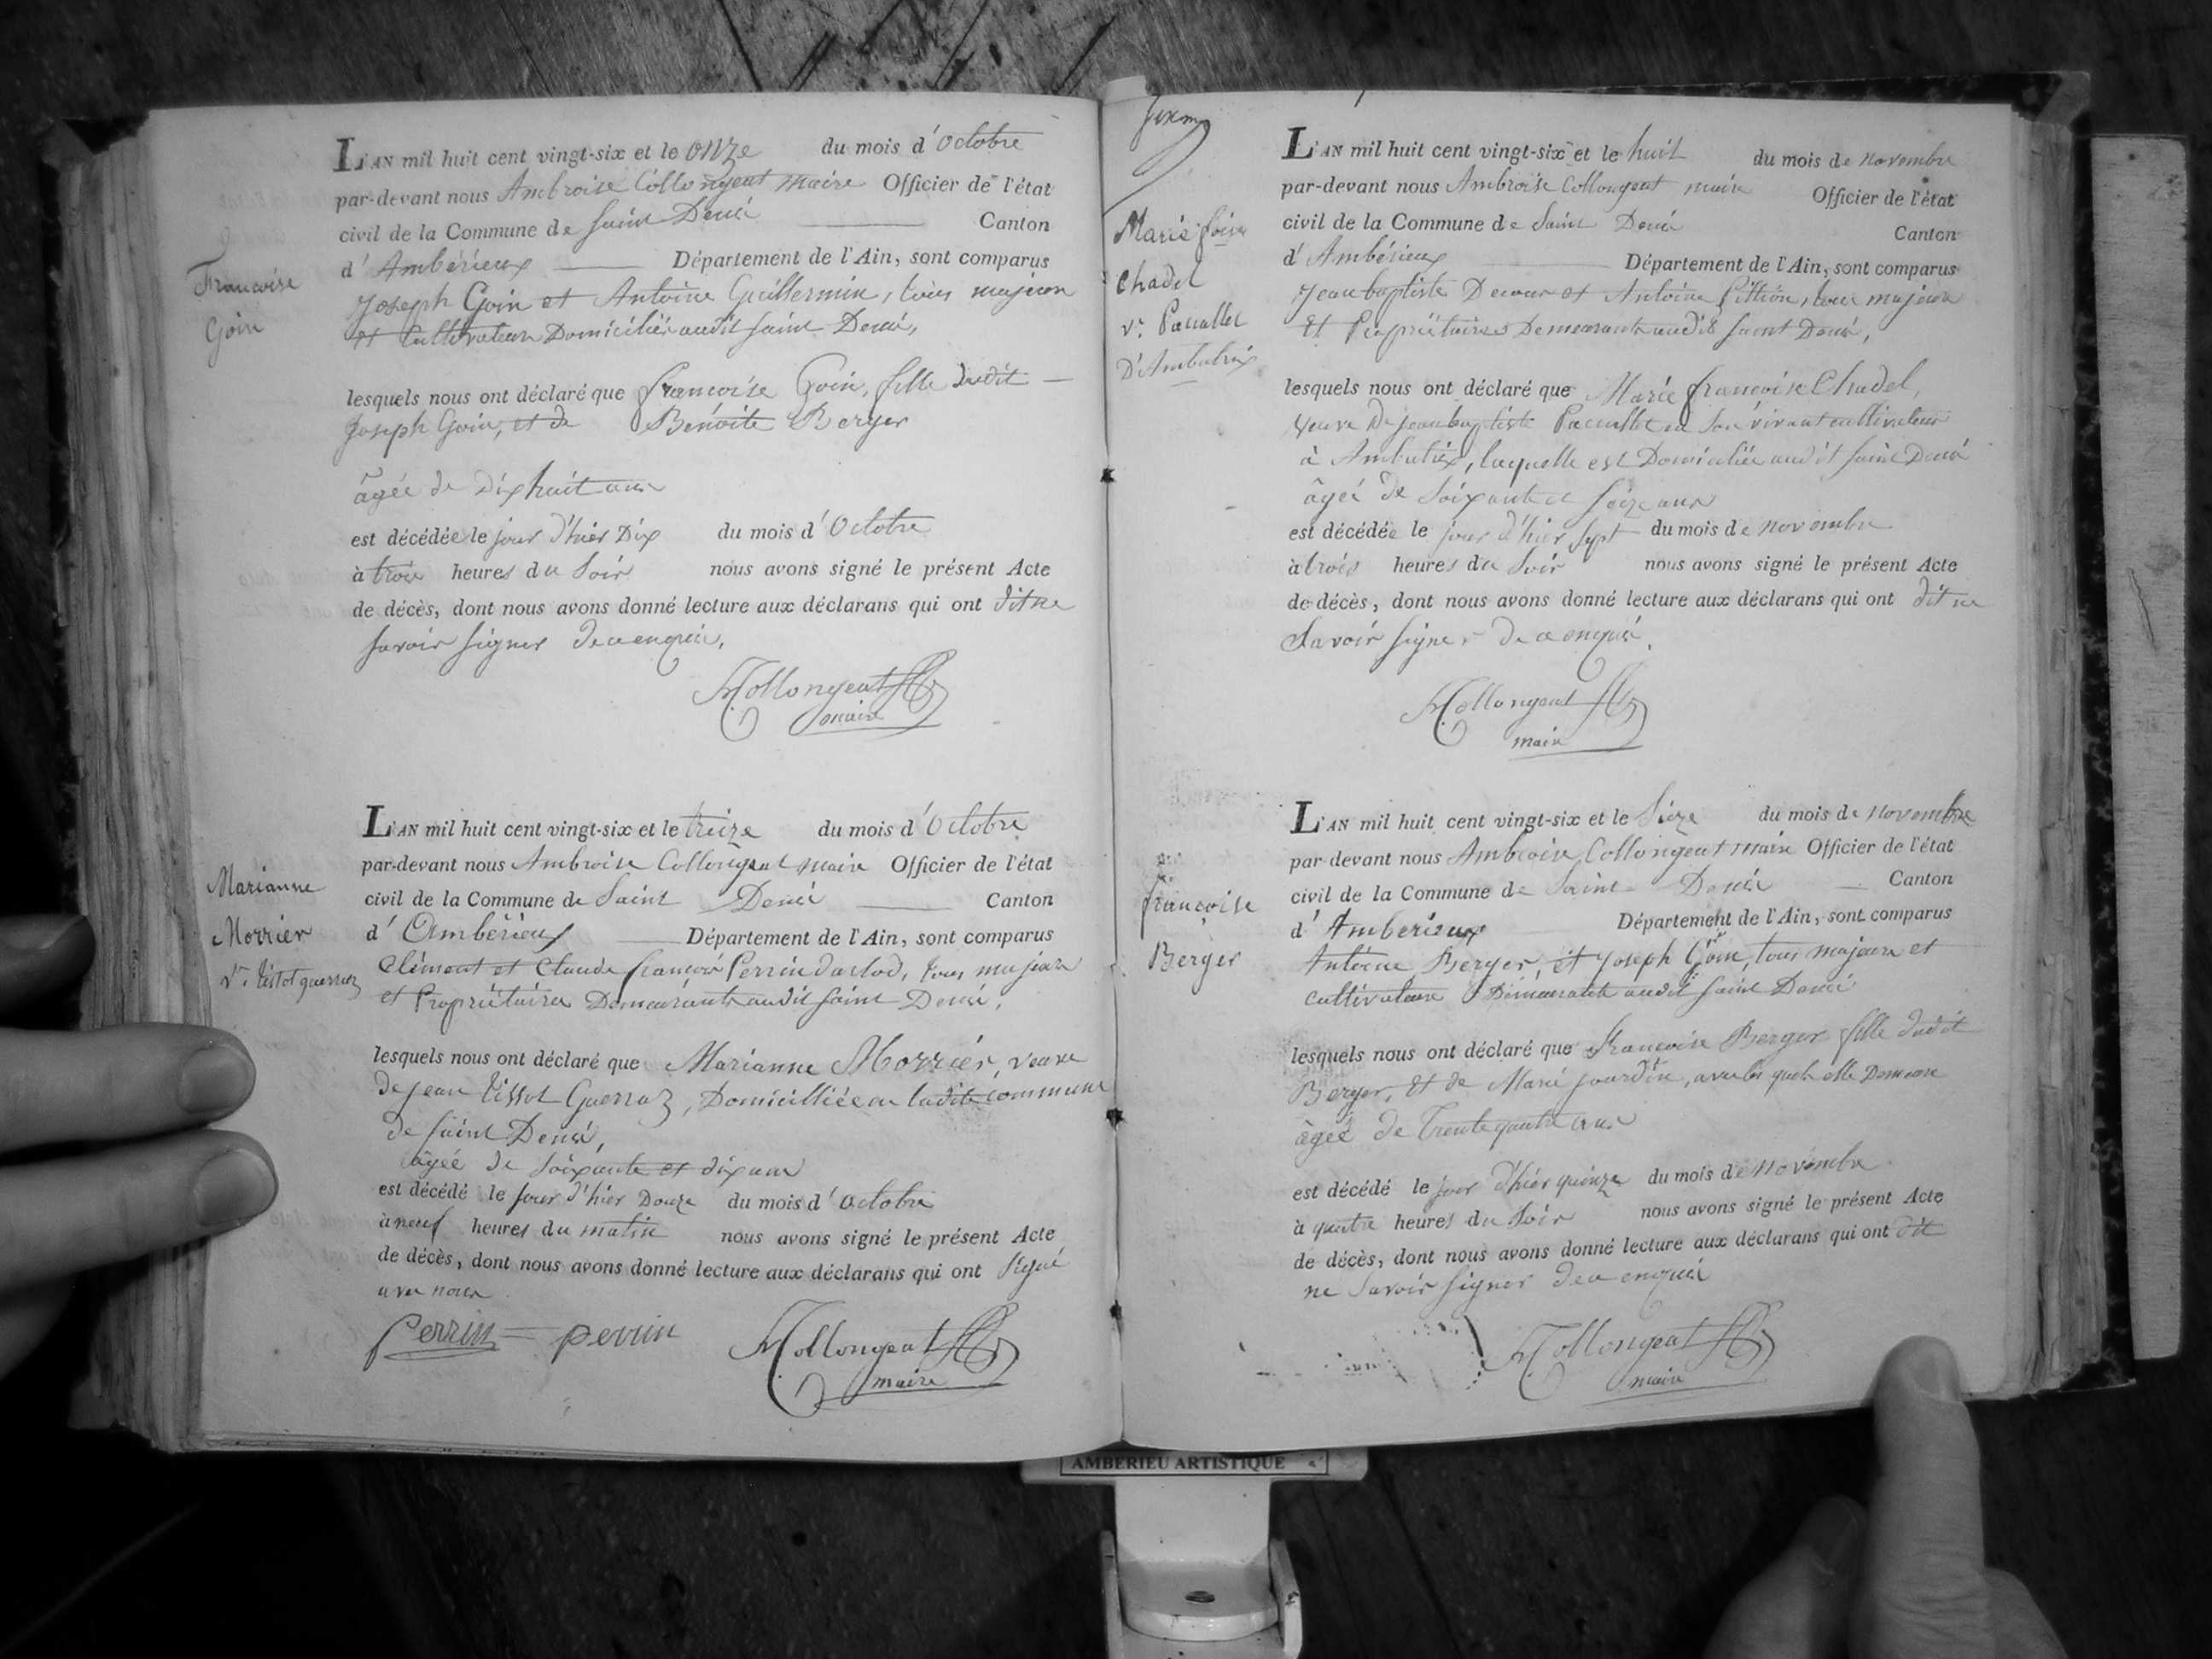 Françoise
Goin
L'AN mil huit cent vingt-six et le onze du mois d'Octobre
par-devant nous Ambroise Collongeat maire Officier de l'état
civil de la Commune de Saint Denis Canton
d'Ambérieux Département de l'Ain, sont comparus
Joseph Goin et Antoine Guillermin, tous majeurs
et Cultivateurs Domiciliés audit Saint Denis,
lesquels nous ont déclaré que françoise Goin, fille dudit
Joseph Goin, et de Benoite Berger
âgée de Dix huit ans
est décédée le jour d'hier Dix du mois d'Octobre
à trois heures du Soir nous avons signé le présent Acte
de décès, dont nous avons donné lecture aux déclarans qui ont dit ne
savoir signer de ce enquis.
Collongeat
maire
Marianne
Morrier
Ve. tissot guerraz
L'AN mil huit cent vingt-six et le treize du mois d'Octobre
par-devant nous Ambroise Collongeat maire Officier de l'état
civil de la Commune de Saint Denis Canton
d'Ambérieux Département de l'Ain, sont comparus
Clément et Claude françois Perrin darlod, tous majeurs
et Propriétaires Demeurants audit Saint Denis,
lesquels nous ont déclaré que Marianne Morrier, veuve
de jean tissot Guerraz, Domicilliée en ladite commune
de Saint Denis,
âgée de soixante et dix ans
est décédé le jour d'hier Douze du mois d'Octobre
à neuf heures du matin nous avons signé le présent Acte
de décès, dont nous avons donné lecture aux déclarans qui ont signé
avec nous
Perrin perrin Collongeat
maire
Marie foise
Chadel
ve. Pacallet
D'Ambutrix
L'AN mil huit cent vingt-six et le huit du mois de novembre
par-devant nous Ambroise Collongeat maire Officier de l'état
civil de la Commune de Saint Denis Canton
d'Ambérieux Département de l'Ain, sont comparus
Jean baptiste Decour et Antoine Pittion, tous majeurs
et Propriétaires Demeurants audit Saint Denis,
lesquels nous ont déclaré que Marie françoise Chadel,
veuve de jean baptiste Pacallet en son vivant cultivateur
à Ambutrix, laquelle est Domiciliée audit Saint Denis
âgée de soixante et seize ans
est décédée le jour d'hier sept du mois de novembre
à trois heures du Soir nous avons signé le présent Acte
de décès, dont nous avons donné lecture aux déclarans qui ont dit ne
savoir signer de ce enquis.
Collongeat
maire
françoise
Berger
L'AN mil huit cent vingt-six et le Sieze du mois de novembre
par devant nous Ambroise Collongeat maire Officier de l'état
civil de la Commune de Saint Denis Canton
d'Amberieux Département de l'Ain, sont comparus
Antoine Berger, et Joseph Goin, tous majeurs et
cultivateurs Demeurants audit Saint Denis
lesquels nous ont déclaré que françoise Berger fille dudit
Berger, et de Marie jourdin, avec les quels elle Demeure
âgée de trente quatre ans
est décédé le jour d'hier quinze du mois de novembre
à quatre heures du Soir nous avons signé le présent Acte
de décès, dont nous avons donné lecture aux déclarans qui ont dit
ne savoir signer de ce enquis
Collongeat
maire
AMBERIEU ARTISTIQUE